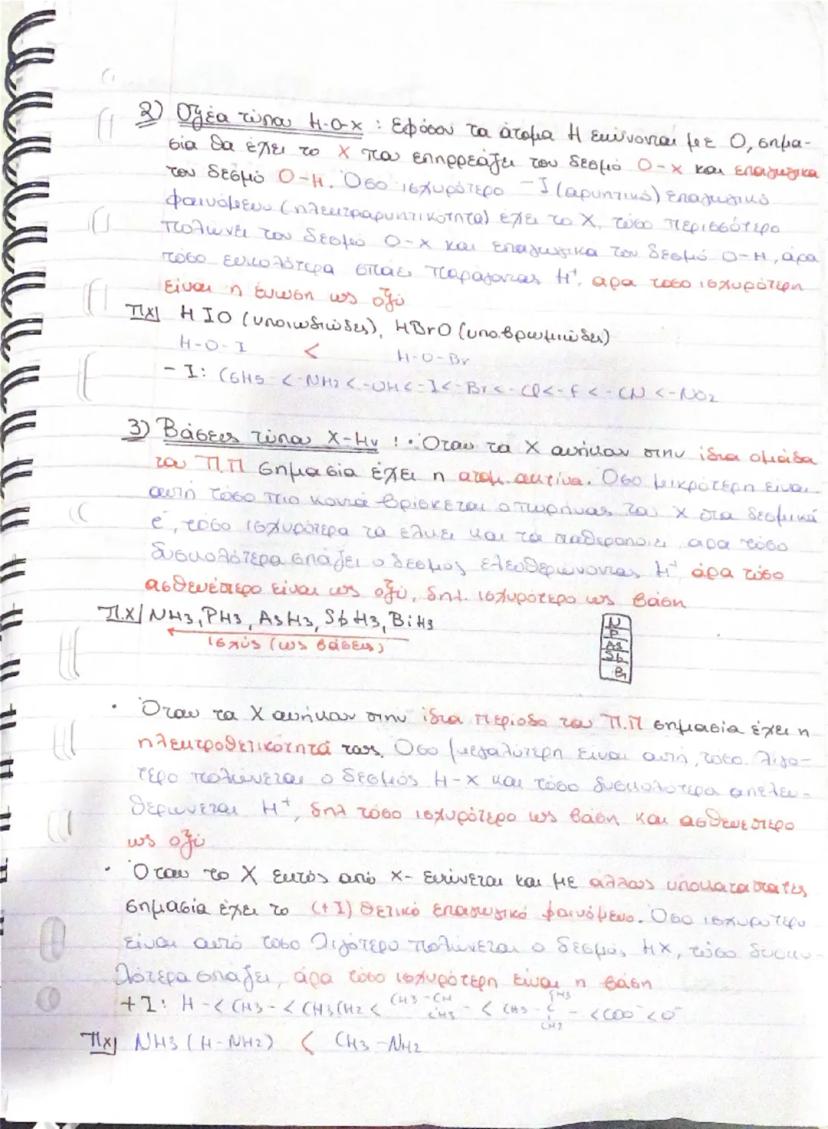 2) Οξέα τύπου H-O-X : Εφόσον τα άτομα H ενώνονται με O, σημα-
σία θα έχει το X που επηρρεάζει τον δεσμό O-X και επαγωγικα
τον δεσμό O-H. Όσο ισχυρότερο -I (αρνητικό) επαγωγικό
φαινόμενο (ηλεκτραρνητικότητα) έχει το X, τόσο περισσότερο
πολώνει τον δεσμό O-X και επαγωγικα τον δεσμό O-H, άρα
τόσο ευκολότερα σπάει παράγοντας H⁺, άρα τόσο ισχυρότερη
είναι η ένωση ως οξύ
Πχ| HIO (υποιωδιώδες), HBrO (υποβρωμιώδες)
H-O-I < H-O-Br
-I: C6H5-<-NH2<-OH<-I<-Br<-Cl<-F<-CN<-NO2
3) Βάσεις τύπου X-Hν : · Όταν τα X ανήκουν στην ίδια ομάδα
του Π.Π σημασία έχει η ατομ. ακτίνα. Όσο μικρότερη είναι
αυτή τόσο πιο κοντά βρίσκεται ο πυρήνας του X στα δεσμικά
e⁻, τόσο ισχυρότερα τα έλκει και τα σταθεροποιεί άρα τόσο
δυσκολότερα σπάζει ο δεσμός ελευθερώνοντας H⁺ άρα τόσο
ασθενέστερο είναι ως οξύ, δηλ. ισχυρότερο ως βάση
Π.Χ| NH3, PH3, AsH3, SbH3, BiH3
ισχύς (ως βάσεις)
N
P
As
Sb
Bi
· Όταν τα X ανήκουν στην ίδια περίοδο του Π.Π σημασία έχει η
ηλεκτροθετικότητά τους. Όσο μεγαλύτερη είναι αυτή, τόσο λιγο-
τερο πολώνεται ο δεσμός H-X και τόσο δυσκολότερα απελευ-
θερώνεται H⁺, δηλ τόσο ισχυρότερο ως βάση και ασθενεστερο
ως οξύ
· Όταν το X εκτός από X- ενώνεται και με άλλους υποκαταστάτες
σημασία έχει το (+I) θετικό επαγωγικό φαινόμενο. Όσο ισχυρότερο
είναι αυτό τοσο λιγότερο πολώνεται ο δεσμός HX, τόσο δυσκο-
λότερα σπάζει, άρα τόσο ισχυρότερη είναι η βάση
+I: H-<CH3-<CH3CH2< CH3-CH CH3 - < CH3-C CH3 CH3 - <COO⁻<O⁻
Πχ| NH3 (H-NH2) < CH3-NH2